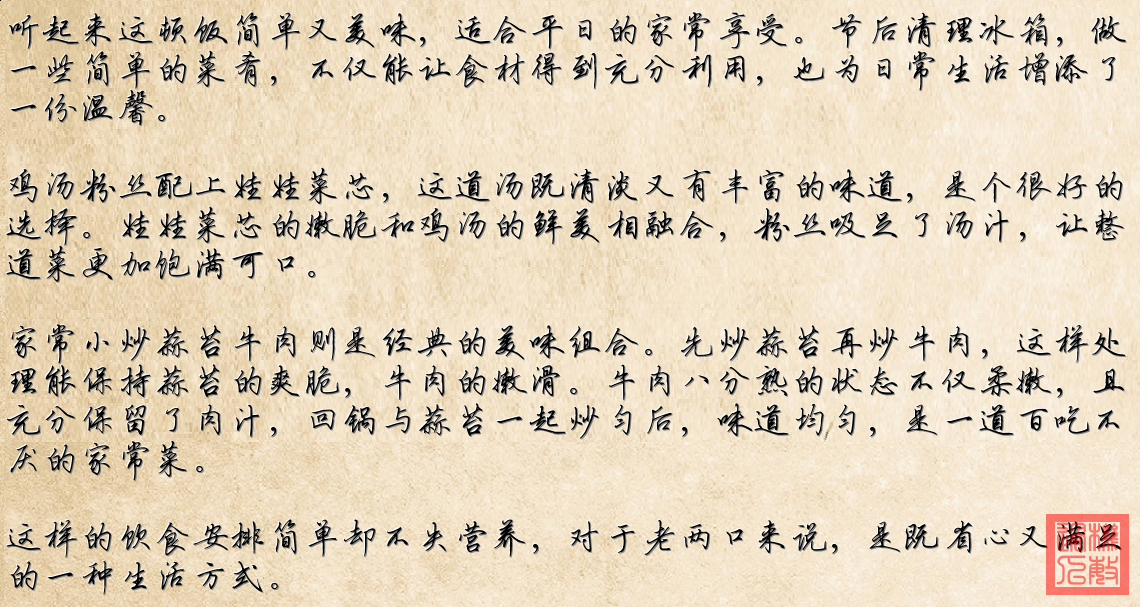 听起来这顿饭简单又美味，适合平日的家常享受。节后清理冰箱，做
一些简单的菜肴，不仅能让食材得到充分利用，也为日常生活增添了
一份温馨。
鸡汤粉丝配上娃娃菜芯，这道汤既清淡又有丰富的味道，是个很好的
选择。娃娃菜芯的嫩脆和鸡汤的鲜美相融合，粉丝吸足了汤汁，让整
道菜更加饱满可口。
家常小炒蒜苔牛肉则是经典的美味组合。先炒蒜苔再炒牛肉，这样处
理能保持蒜苔的爽脆，牛肉的嫩滑。牛肉八分熟的状态不仅柔嫩，且
充分保留了肉汁，回锅与蒜苔一起炒匀后，味道均匀，是一道百吃不
厌的家常菜。
这样的饮食安排简单却不失营养，对于老两口来说，是既省心又满足
的一种生活方式。